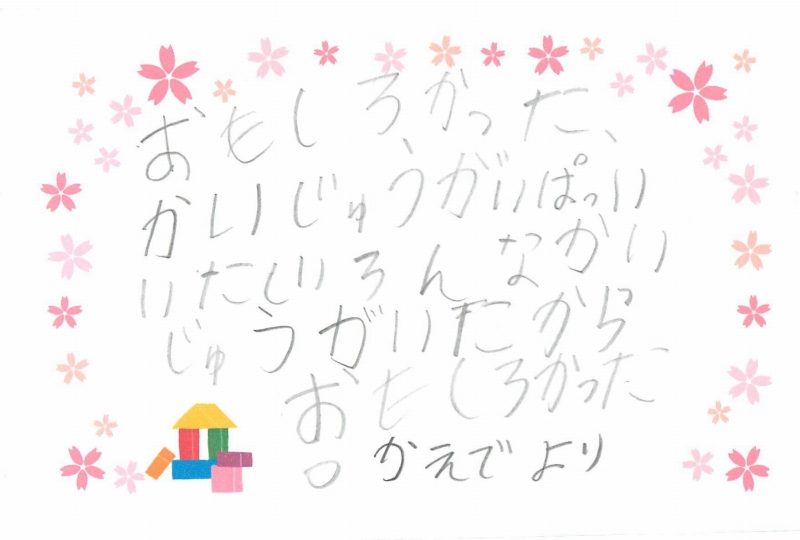 おもしろかった、
かいじゅうがいぱっい
いたしいろんなかい
じゅうがいたから
おもしろかった
。かえでより